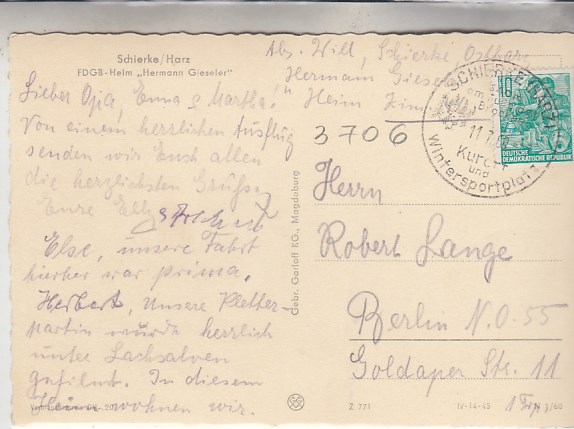 Schierke/Harz
FDGB-Heim „Hermann Gieseler"
Abs. Will, Schierke, Ostharz
"Hermann Giese
Heim Zim.
Lieber Opa, Emma & Martha!
Von einem herrlichen Ausflug
senden wir Euch allen
die herzlichsten Grüße
Eure
Else, unsere Fahrt
hierher war prima.
Herbert, unsere Kletter-
partie wurde herrlich
unter Lachsalven
gefilmt. In diesem
Heim wohnen wir.
3706
Herrn
Robert Lange
Berlin N.O. 55
Goldaper Str. 11
Gebr. Garloff KG., Magdeburg
SCHIERKE (HARZ)
11.7.
Kurort
und
Wintersportplatz
10
DEUTSCHE
DEMOKRATISCHE REPUBLIK
Z 771
IV-14-45
1 Trp.
/60